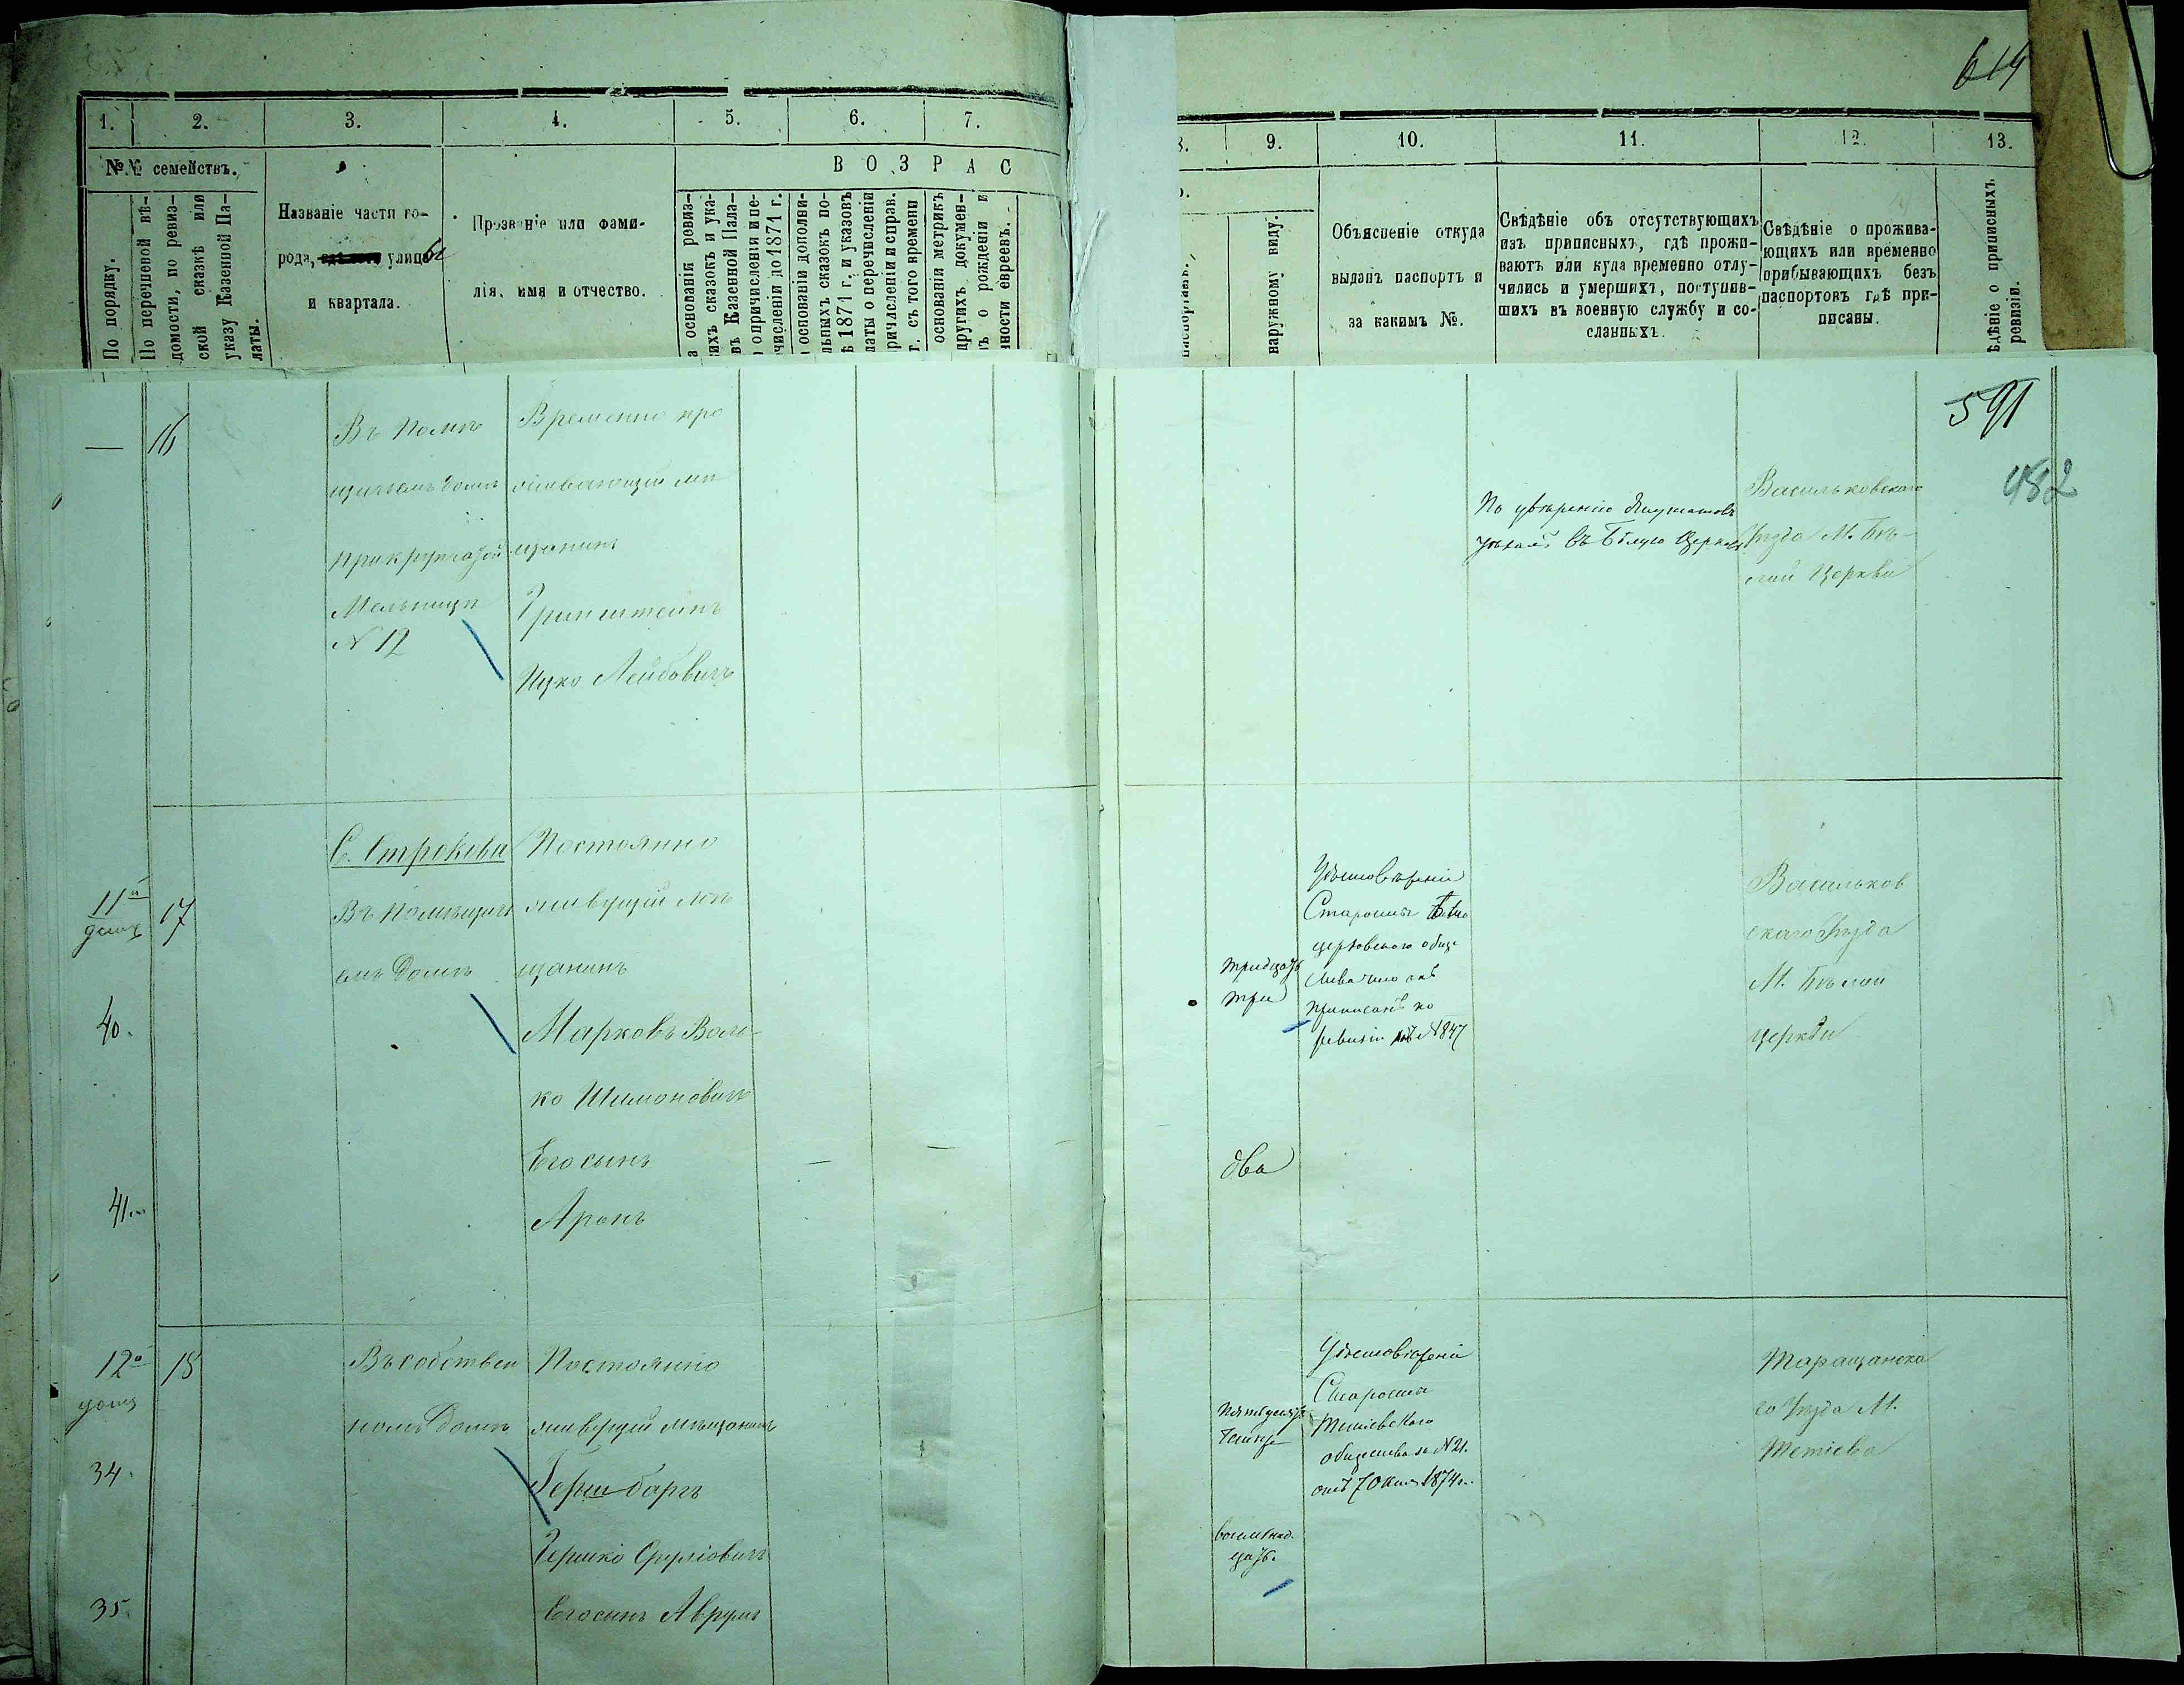 614
1. 2. 3. 4. 5. 6. 7.
№№ семействъ.
По порядку.
По перечневой вѣ-
домости, по ревиз-
ской сказкѣ или
указу Казенной Па-
латы.
Названіе части го-
рода, улицы
и квартала.
Прозваніе или фами-
лія, имя и отчество.
ВОЗРАС
а основаніи ревиз-
ихъ сказокъ и ука-
въ Казенной Пала-
о причисленіи и пе-
численіи до 1871 г.
основаніи дополни-
льныхъ сказокъ по-
ѣ 1871 г. и указовъ
латы о перечисленіи
ричисленіи и справ.
г. съ того времени
основаніи метрикъ
другихъ докумен-
ъ о рожденіи и
ности евреевъ.
8. 9. 10. 11. 12. 13.
наружному виду.
Объясненіе откуда
выданъ паспортъ и
за какимъ №.
Свѣдѣніе объ отсутствующихъ
изъ приписныхъ, гдѣ прожи-
ваютъ или куда временно отлу-
чились и умершихъ, поступив-
шихъ въ военную службу и со-
сланныхъ.
Свѣдѣніе о прожива-
ющихъ или временно
прибывающихъ безъ
паспортовъ гдѣ при-
писаны.
ѣдѣніе о приписныхъ
ревизіи.
591
482
— 16
Въ Помѣ
щичьемъ домѣ
при крупчатой
Мельницѣ
N 12
Временно про
живающій мѣ
щанинъ
Гринштейнъ
Ицко Лейбовичъ
По увѣренію Депутатовъ
уѣхалъ въ Бѣлую Церковь
Васильковскаго
Уѣзда М. Бѣ-
лой Церкви
11й
17
40.
41.
С. Строкова
Въ Помѣщичь
емъ домѣ
Постоянно
живущій мѣ
щанинъ
Марковъ Воль-
ко Шимоновичъ
Его сынъ
Аронъ
тридцать
три
два
Удостовѣреніе
Старосты Бѣло
церковского обще
ства что онъ
приписанъ по
ревизіи N 1847
Васильков
скаго Уѣзда
М. Бѣлой
Церкви
12й
18
34.
35.
Въ собствен
номъ домѣ
Постоянно
живущій мѣщанинъ
Гершбаргъ
Гершко Сруліовичъ
Его сынъ Аврумъ
Пятьдесятъ
восемнад.
цать.
Удостовѣреніе
Старосты
Тетіевского
общества за N 21.
отъ 7 Октя 1874 г.
Таращанска
го Уѣзда М.
Тетіева